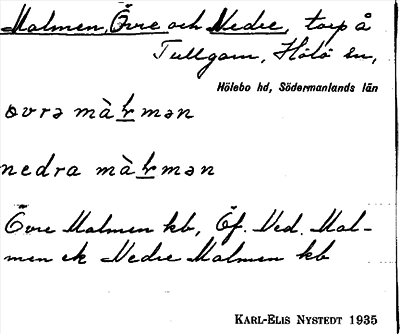 Malmen, Övre och Nedre, torp å
Tullgarn, Hölö sn,
Hölebo hd, Södermanlands län
øvrə màɽmən
nedra màɽmən
Övre Malmen kb, Öf. Ned. Mal-
men ek Nedre Malmen kb
KARL-ELIS NYSTEDT 1935